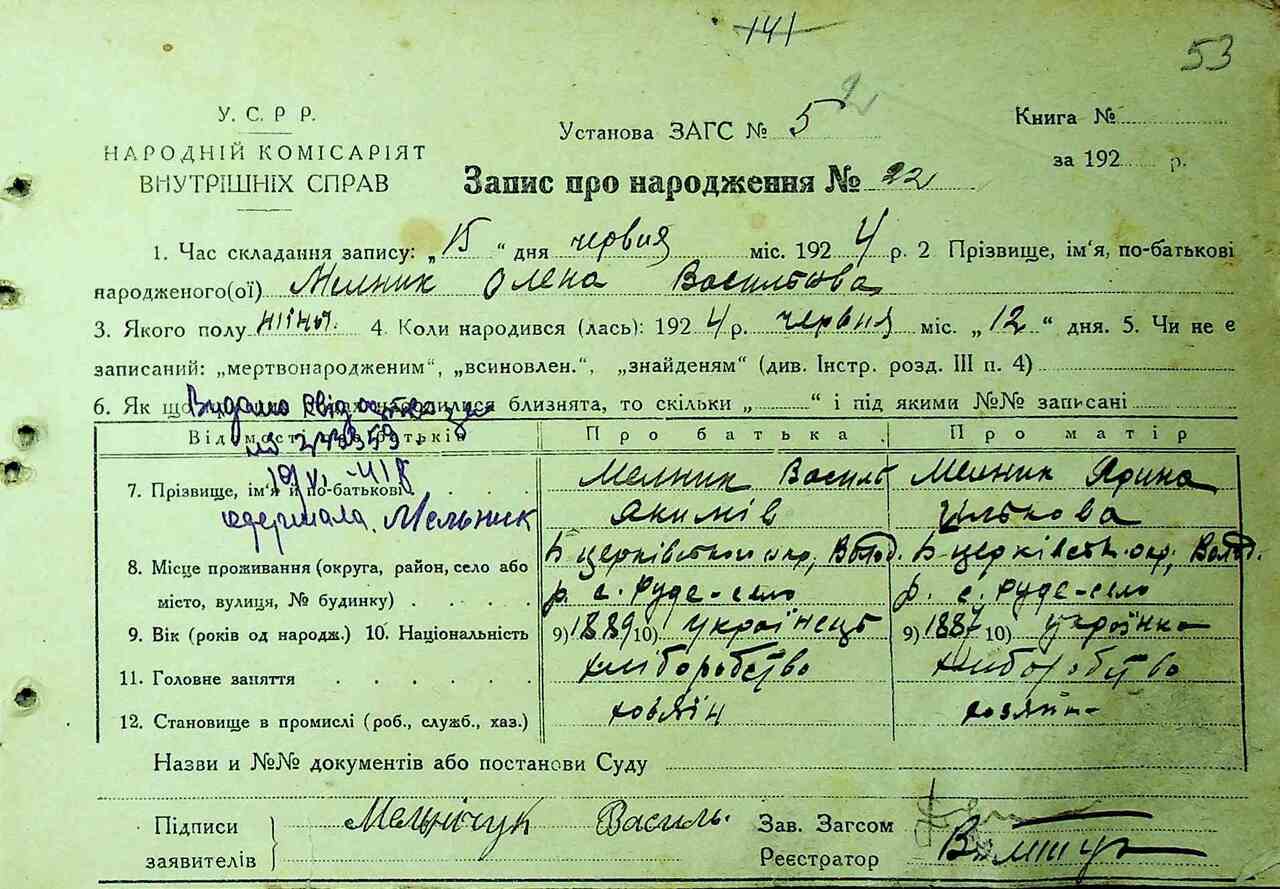 141
53
У. С. Р Р.
НАРОДНІЙ КОМІСАРІЯТ
ВНУТРІШНІХ СПРАВ
Установа ЗАГС № 5
Книга №
за 192 р.
Запис про народження № 22
1. Час складання запису: „15“ дня червня міс. 1924 р. 2 Прізвище, ім'я, по-батькові
народженого(ої) Мелник Олена Васильова
3. Якого полу жіноч. 4. Коли народився (лась): 1924 р. червня міс. „12“ дня. 5. Чи не є
записаний: „мертвонародженим“, „всиновлен.“, „знайденям“ (див. Інстр. розд. III п. 4)
6. Як що близнята, то скільки „ “ і під якими №№ записані
Видано
Відомості батьків Про батька Про матір
7. Прізвище, ім'я й по-батькові Мелник Василь Мелник Ярина
одержала. Мельник Якимів Ількова
8. Місце проживання (округа, район, село або Б церківськ окр, Волод. Б церківськ. окр. Волод.
місто, вулиця, № будинку) р. с. Руде-село р. с. Руде-село
9. Вік (років од народж.) 10. Національність 9) 1889 10) українець 9) 1887 10) українка
11. Головне заняття хліборобство хліборобство
12. Становище в промислі (роб., служб., хаз.) хозяїн хозяйн-
Назви и №№ документів або постанови Суду
Підписи Мельнічук Василь. Зав. Загсом
заявителів Реєстратор